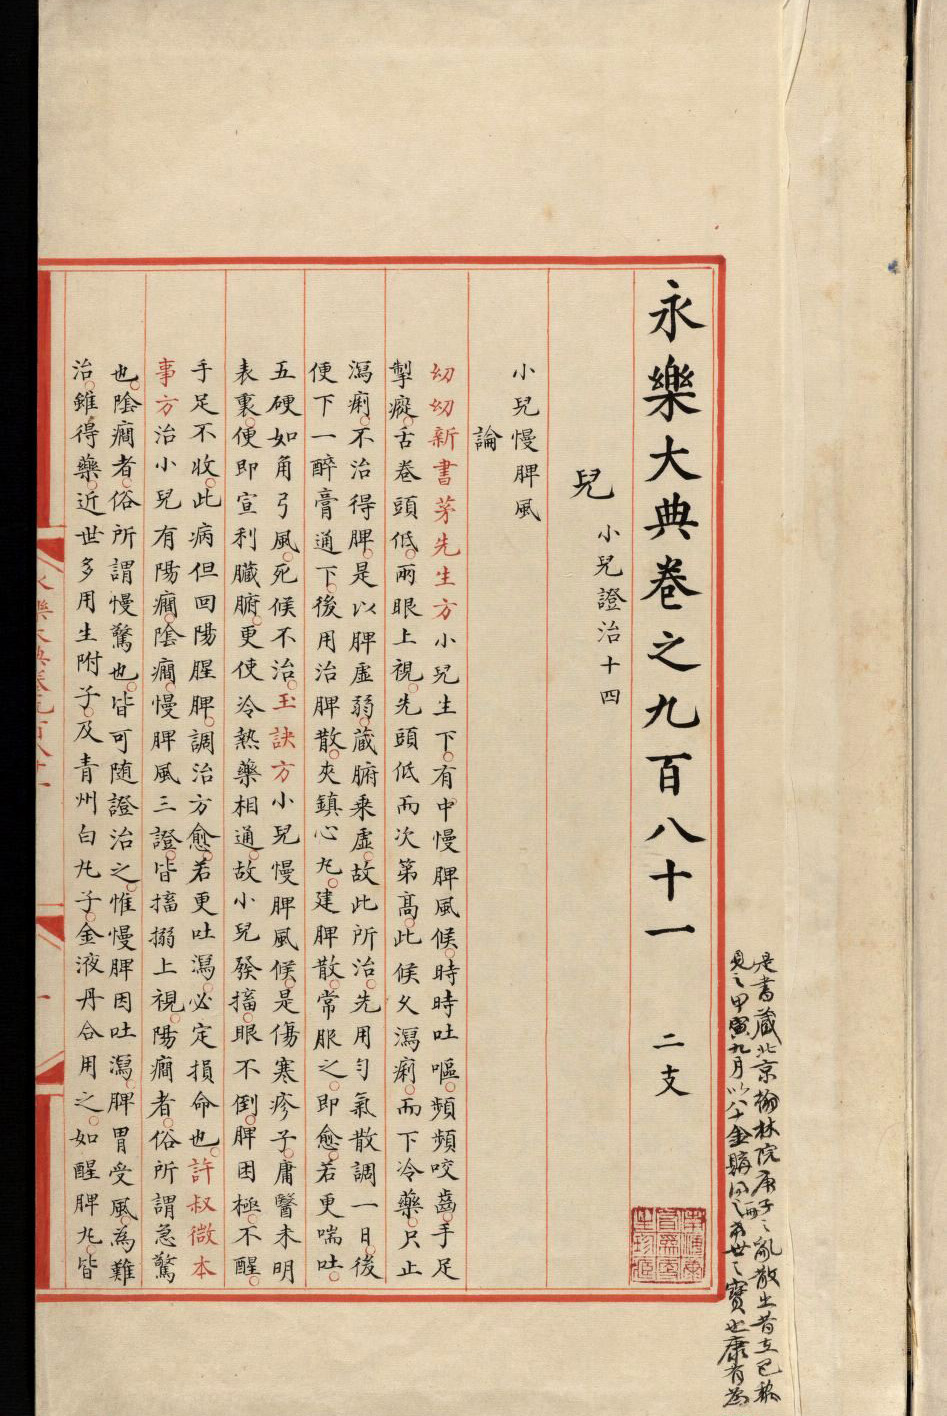 是書藏北京翰林院庚子之亂散出昔在巴黎
見之甲寅九月以八十金購世之寶也康有為
永樂大典卷之九百八十一 二支
兒 小兒證治十四
小兒慢脾風
論
幼幼新書茅先生方小兒生下有中慢脾風候時時吐嘔頻頻咬齒手足
掣瘲舌卷頭低兩眼上視先頭低而次第高此候久瀉痢而下冷藥只止
瀉痢不治得脾是以脾虛弱蔵腑乘虛故此所治先用勻氣散調一日後
便下一醉膏通下後用治脾散夾鎮心丸建脾散常服之即愈若更喘吐
五硬如角弓風死候不治玉訣方小兒慢脾風候是傷寒疹子庸醫未明
表裏便即宣利臟腑更使冷熱藥相通故小兒發搐眼不倒脾困極不醒
手足不收此病但回陽腥脾調治方愈若更吐瀉必定損命也許叔微本
事方治小兒有陽癇陰癇慢脾風三證皆搐搦上視陽癇者俗所謂急驚
也陰癇者俗所謂慢驚也皆可随證治之惟慢脾因吐瀉脾胃受風為難
治雖得藥近世多用生附子及青州白丸子金液丹合用之如醒脾丸皆
永樂大典卷九百八十一